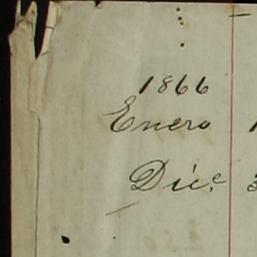 1866
Enero
Dic.e